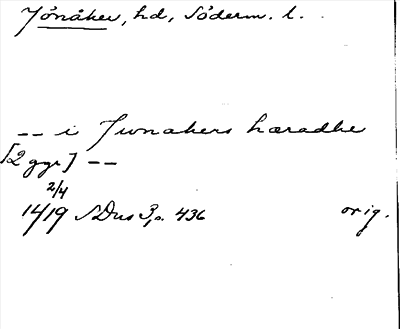 Jönåker, hd, Söderm. l.
-- i Junakers hæradhe
[2 ggr] --
2/4
1419 SDns 3, s. 436 orig.